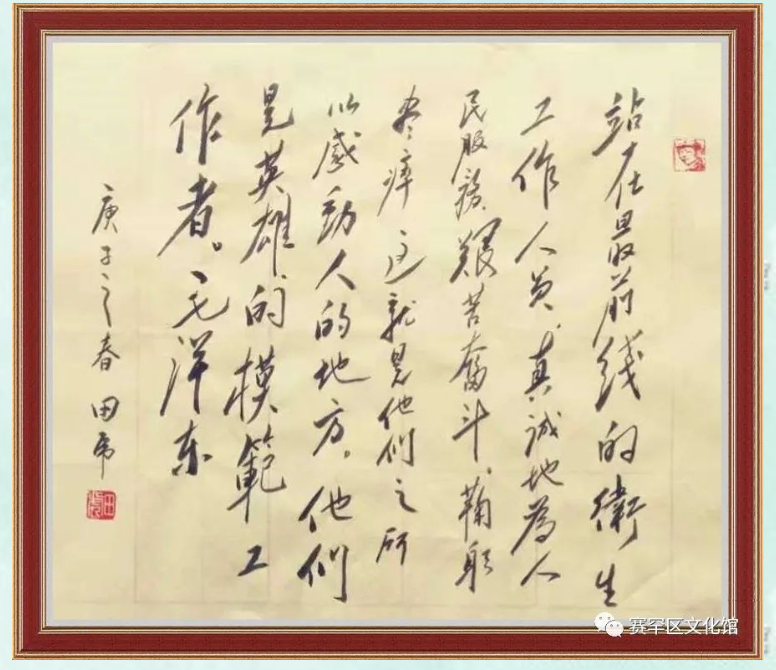 站在最前线的衛生
工作人员,真誠地為人
民服務,艱苦奋斗,鞠躬
尽瘁 这就是他们之所
以感動人的地方,他们
是英雄的模範工
作者。毛泽东
庚子之春 田虎
赛罕区文化馆